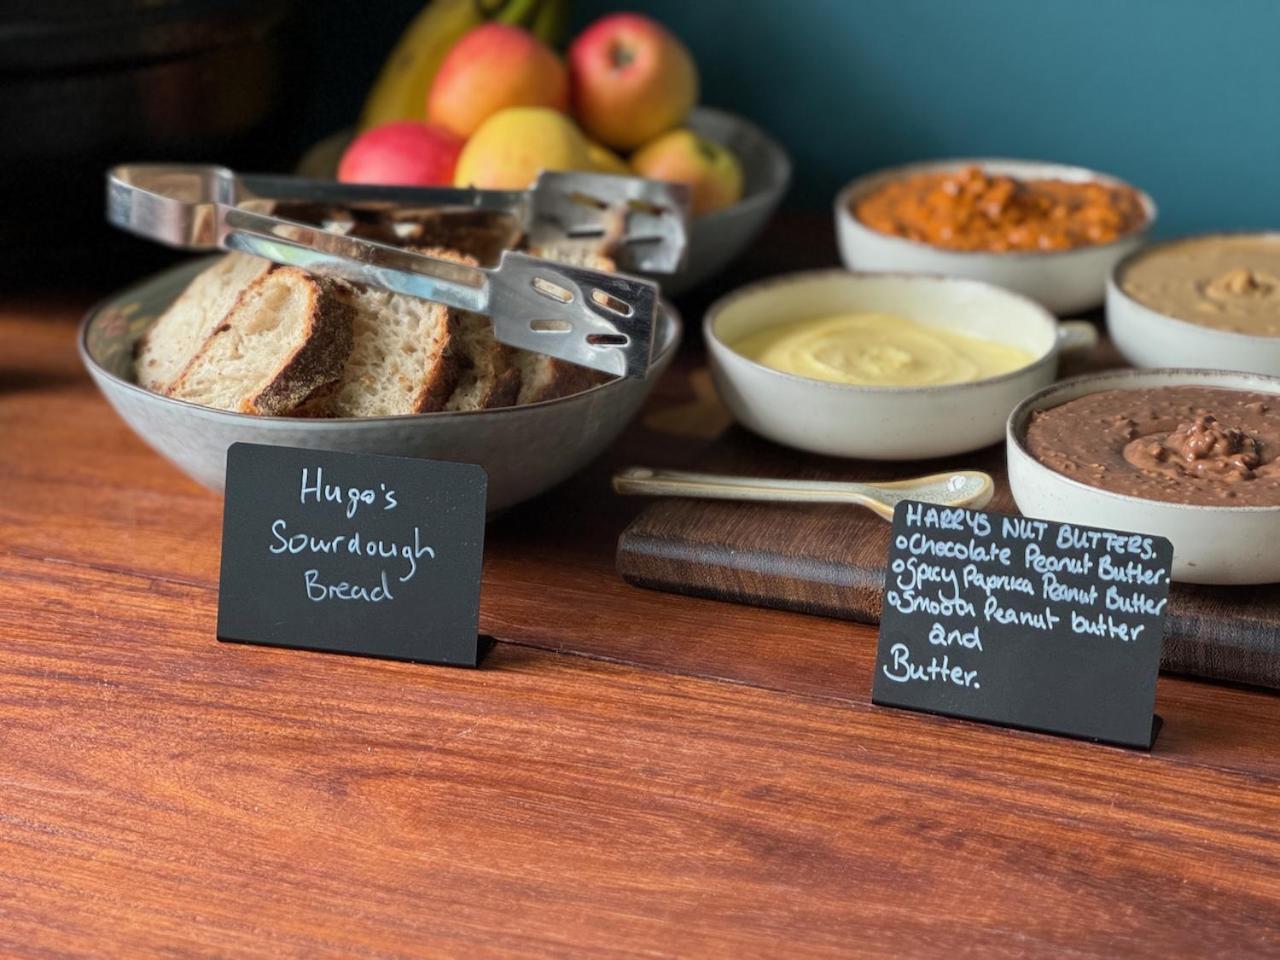 Hugo's
Sourdough
Bread
HARRYS NUT BUTTERS.
oChocolate Peanut Butter.
oSpicy Paprika Peanut Butter
oSmooth Peanut butter
and
Butter.